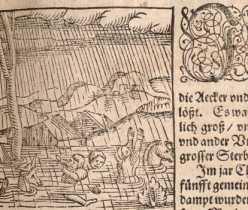 die Aecker vnd
lößt. Es wa
lich groß / v
vnd ander V
grosser Sterb
Im jar Ch
fünfft gemein
dampt wurde